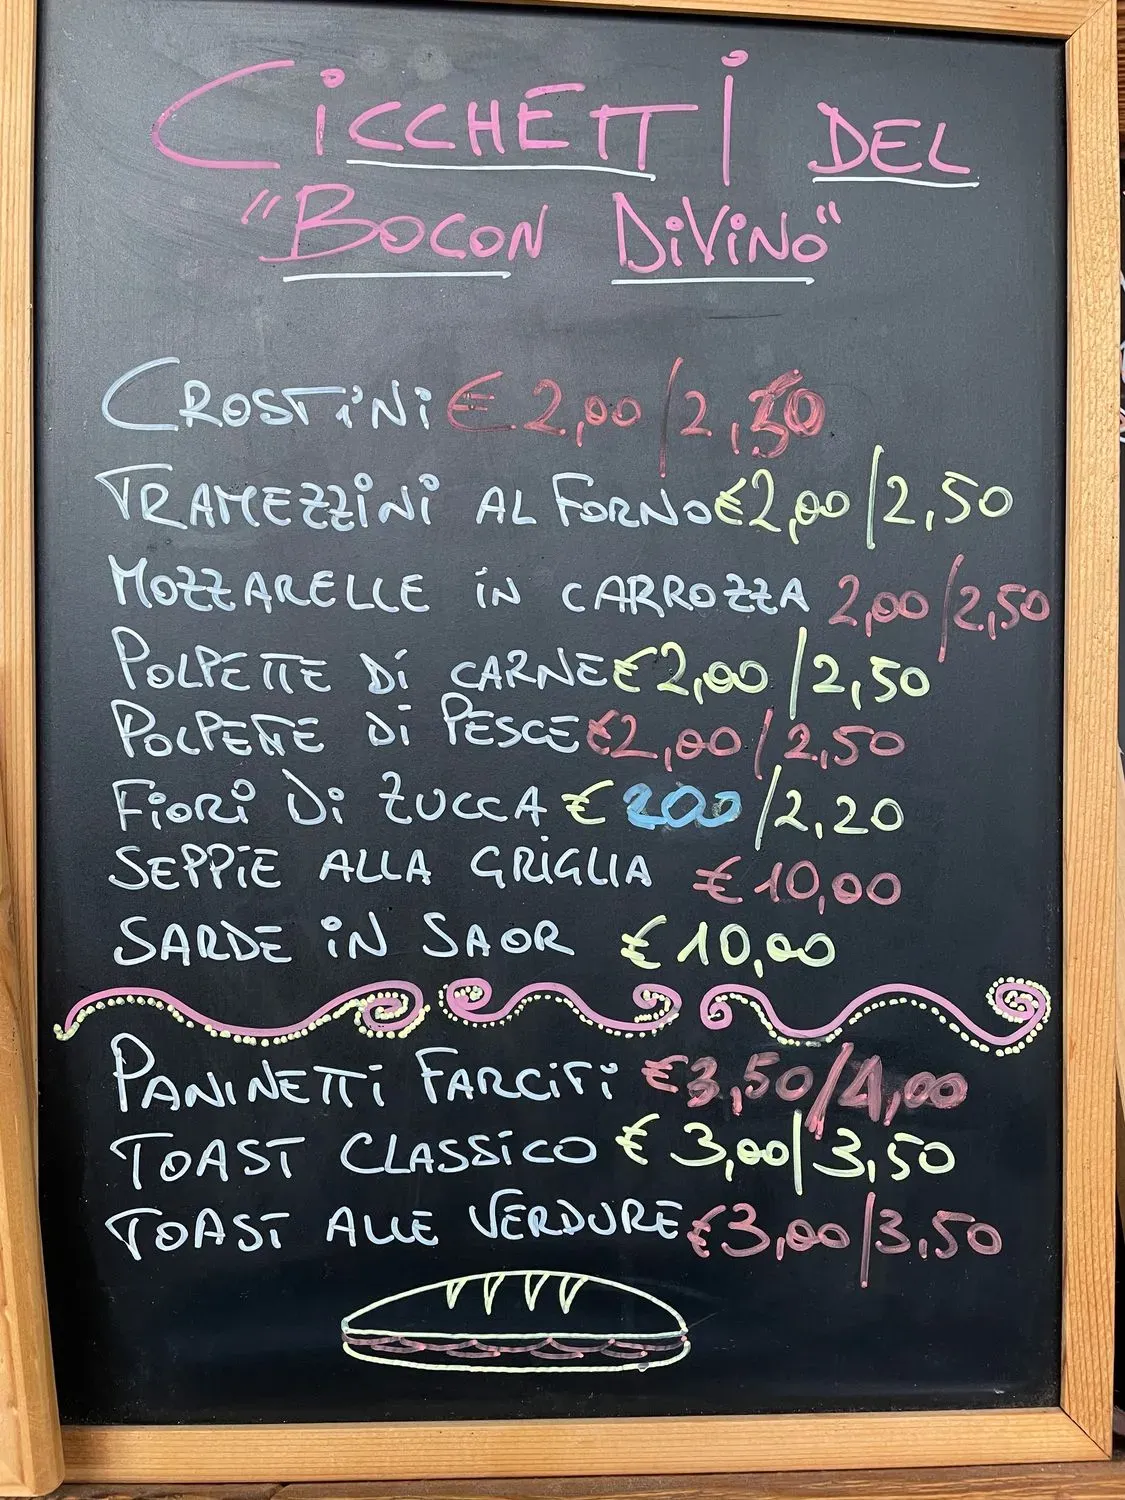 CiCCHETTi DEL
"BOCON DiViNO"
CROSTiNi € 2,00/2,50
TRAMEZZiNi AL FORNO €2,00/2,50
MOZZARELLE iN CARROZZA 2,00/2,50
POLPETTE Di CARNE €2,00/2,50
POLPETTE Di PESCE €2,00/2,50
FiORi Di ZUCCA € 200/2,20
SEPPiE ALLA GRiGLiA € 10,00
SARDE iN SAOR € 10,00
PANiNETTi FARCiTi €3,50/4,00
TOAST CLASSiCO € 3,00/3,50
TOAST ALLE VERDURE €3,00/3,50